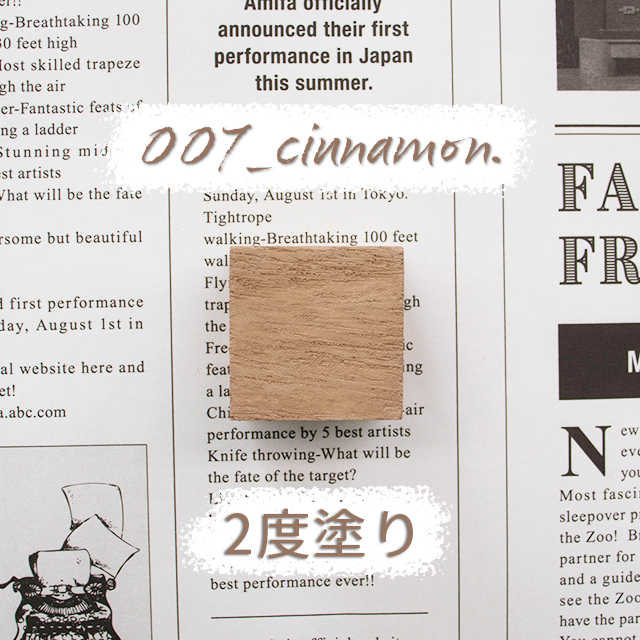 -Breathtaking 100
30 feet high
Most skilled trapeze
the air
er-Fantastic feats of
ng a ladder
Stunning
st artists
What will be the fate
rsome but beautiful
d first performance
day, August 1st in
al website here and
et!
a.abc.com
Amifa officially
announced their first
performance in Japan
this summer.
007_cinnamon.
Sunday, August 1st in Tokyo.
Tightrope
walking-Breathtaking 100 feet
performance by 5 best artists
Knife throwing-What will be
the fate of the target?
2度塗り
best performance ever!!
FA
FR
M
New
eve
you
Most fasci
sleepover p
the Zoo! B
partner for
and a guide
see the Zoo
have the pa